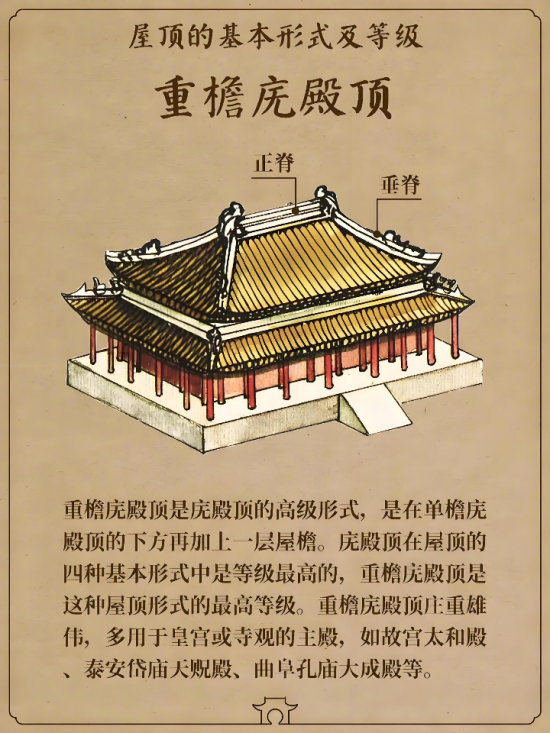 屋顶的基本形式及等级
重檐庑殿顶
正脊
垂脊
重檐庑殿顶是庑殿顶的高级形式，是在单檐庑
殿顶的下方再加上一层屋檐。庑殿顶在屋顶的
四种基本形式中是等级最高的，重檐庑殿顶是
这种屋顶形式的最高等级。重檐庑殿顶庄重雄
伟，多用于皇宫或寺观的主殿，如故宫太和殿
、泰安岱庙天贶殿、曲阜孔庙大成殿等。